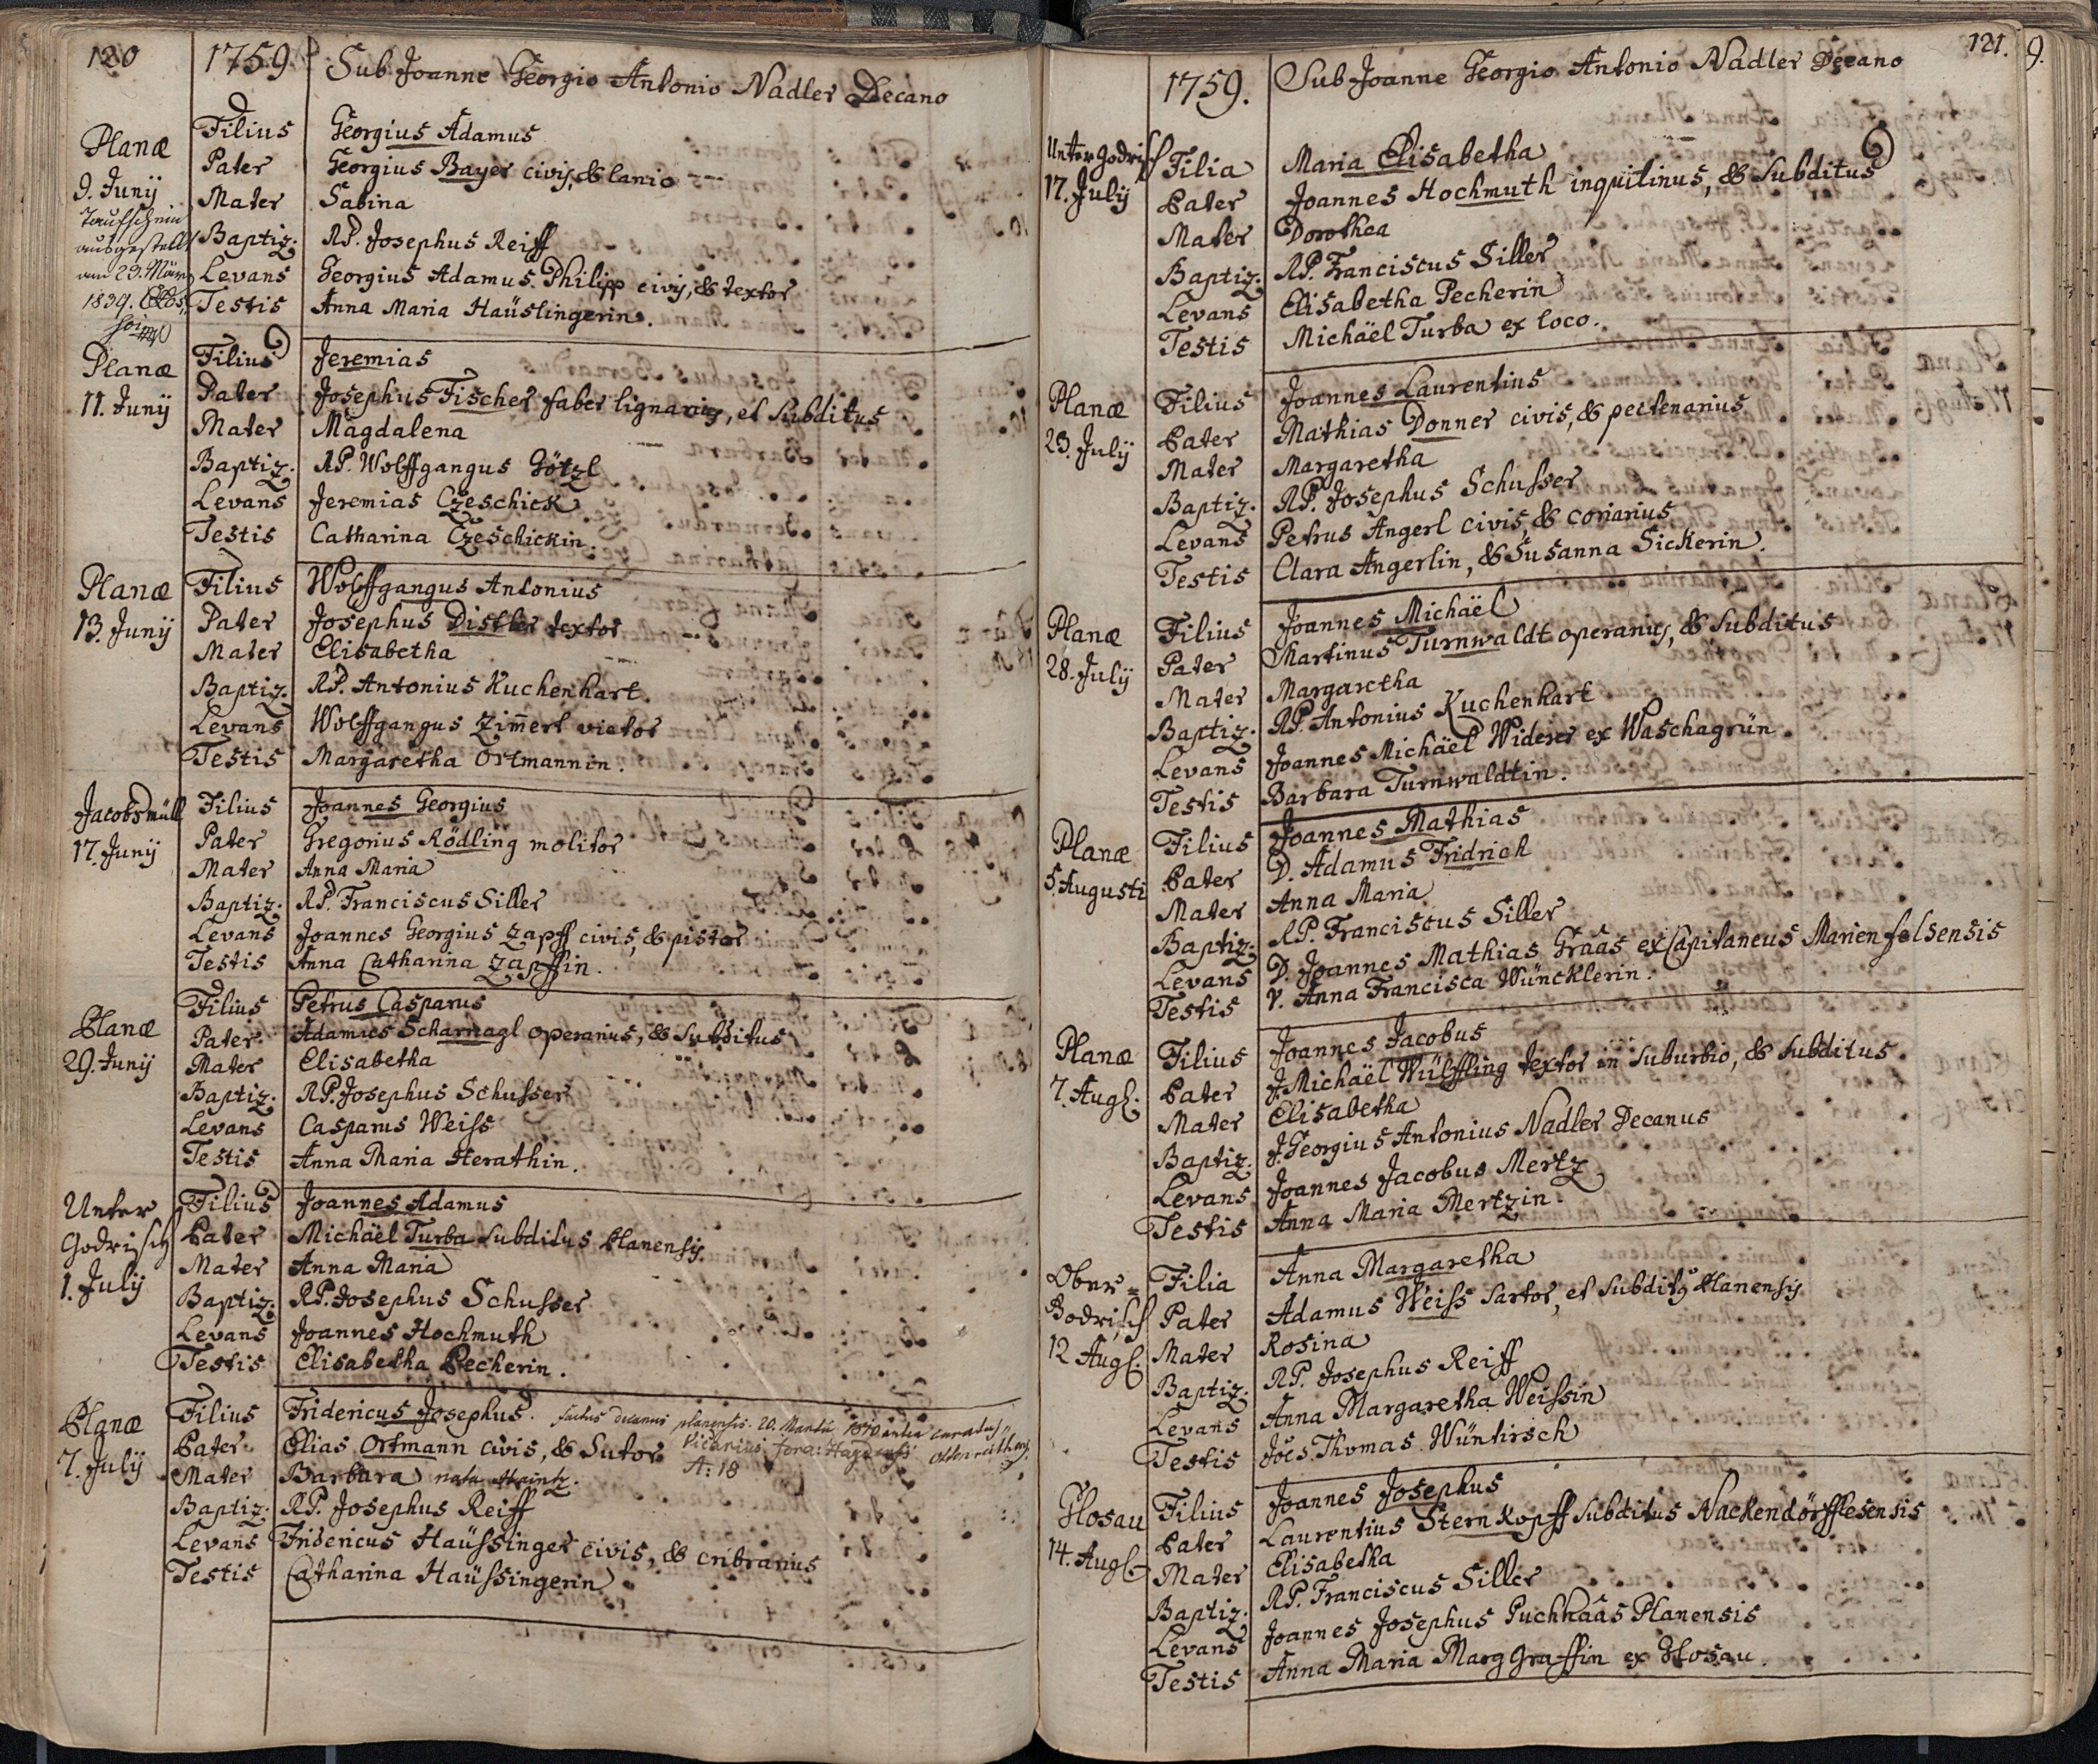 120 1759 Sub Joanne Georgio Antonio Nadler Decano
Planæ Filius Georgius Adamus
9. Junij Pater Georgius Bayer civis, & lanio
Mater Sabina
Taufschein
ausgestellt Baptiz. RP. Josephus Reiff
am 23. März Levans Georgius Adamus Philipp civis, & textor
1839. Testis Anna Maria Haüslingerin.
Planæ Filius Jeremias
11. Junij Pater Josephus Fischer faber lignarius, et subditus
Mater Magdalena
Baptiz. RP. Wolffgangus Götzl
Levans Jeremias Czeschick
Testis Catharina Czeschickin.
Planæ Filius Wolffgangus Antonius
13. Junij Pater Josephus Distler textor
Mater Elisabetha
Baptiz. RP. Antonius Kuchenhart
Levans Wolffgangus Zim̄erl vietor
Testis Margaretha Ortmannin.
Jacobsmüll Filius Joannes Georgius
17. Junij Pater Gregorius Rödling molitor
Mater Anna Maria
Baptiz. RP. Franciscus Siller
Levans Joannes Georgius Zapff civis, & pistor
Testis Anna Catharina Zapffin.
Planæ Filius Petrus Casparus
29. Junij Pater Adamus Scharnagl operarius, & Subditus
Mater Elisabetha
Baptiz. RP. Josephus Schusser
Levans Casparus Weiss
Testis Anna Maria Herathin.
Unter Filius Joannes Adamus
Godrisch Pater Michäel Turba subditus Planensis.
1. July Mater Anna Maria
Baptiz. RP. Josephus Schusser
Levans Joannes Hochmuth
Testis Elisabetha Pecherin.
Planæ Filius Fridericus Josephus. factus decanus planensis. 20. Martii
7. July Pater Elias Ortmann civis, & Sutor Vicarius
Mater Barbara nata Haintz. A: 18
Baptiz. RP. Josephus Reiff
Levans Fridericus Haüssinger civis, & cribrarius
Testis Catharina Haüssingerin
1759. Sub Joanne Georgio Antonio Nadler Decano 121. 9.
Unter Godrisch Filia Maria Elisabetha
17. July Pater Joannes Hochmuth inquilinus, & Subditus
Mater Dorothea
Baptiz. RP. Franciscus Siller
Levans Elisabetha Pecherin
Testis Michäel Turba ex loco.
Planæ Filius Joannes Laurentius
23. July Pater Mathias Donner civis, & pectenarius
Mater Margaretha
Baptiz. RP. Josephus Schusser
Levans Petrus Angerl civis, & coriarius
Testis Clara Angerlin, & Susanna Sickerin.
Planæ Filius Joannes Michäel
28. July Pater Martinus Turnwaldt operarius, & Subditus
Mater Margaretha
Baptiz. RP. Antonius Kuchenhart
Levans Joannes Michäel Widerer ex Waschagrün
Testis Barbara Turnwaldtin.
Planæ Filius Joannes Mathias
5. Augusti Pater D. Adamus Fridrich
Mater Anna Maria
Baptiz. RP. Franciscus Siller
Levans D. Joannes Mathias Graas ex Capitaneus Marienfelsensis
Testis V. Anna Francisca Wüncklerin.
Planæ Filius Joannes Jacobus
7. Aug. Pater J. Michäel Wülffling textor in suburbio, & Subditus.
Mater Elisabetha
Baptiz. J. Georgius Antonius Nadler Decanus
Levans Joannes Jacobus Mertz
Testis Anna Maria Mertzin.
Ober= Filia Anna Margaretha
Godrisch Pater Adamus Weiss sartor, et Subditus Planensis
12 Aug. Mater Rosina
Baptiz. RP. Josephus Reiff
Levans Anna Margaretha Weissin
Testis Joes. Thomas Wüntirsch
Glosau Filius Joannes Josephus
14. Aug. Pater Laurentius Sternkopff subditus Nackendörfflesensis
Mater Elisabetha
Baptiz. RP. Franciscus Siller
Levans Joannes Josephus Puchhaas Planensis
Testis Anna Maria Marggraffin ex Glosau.